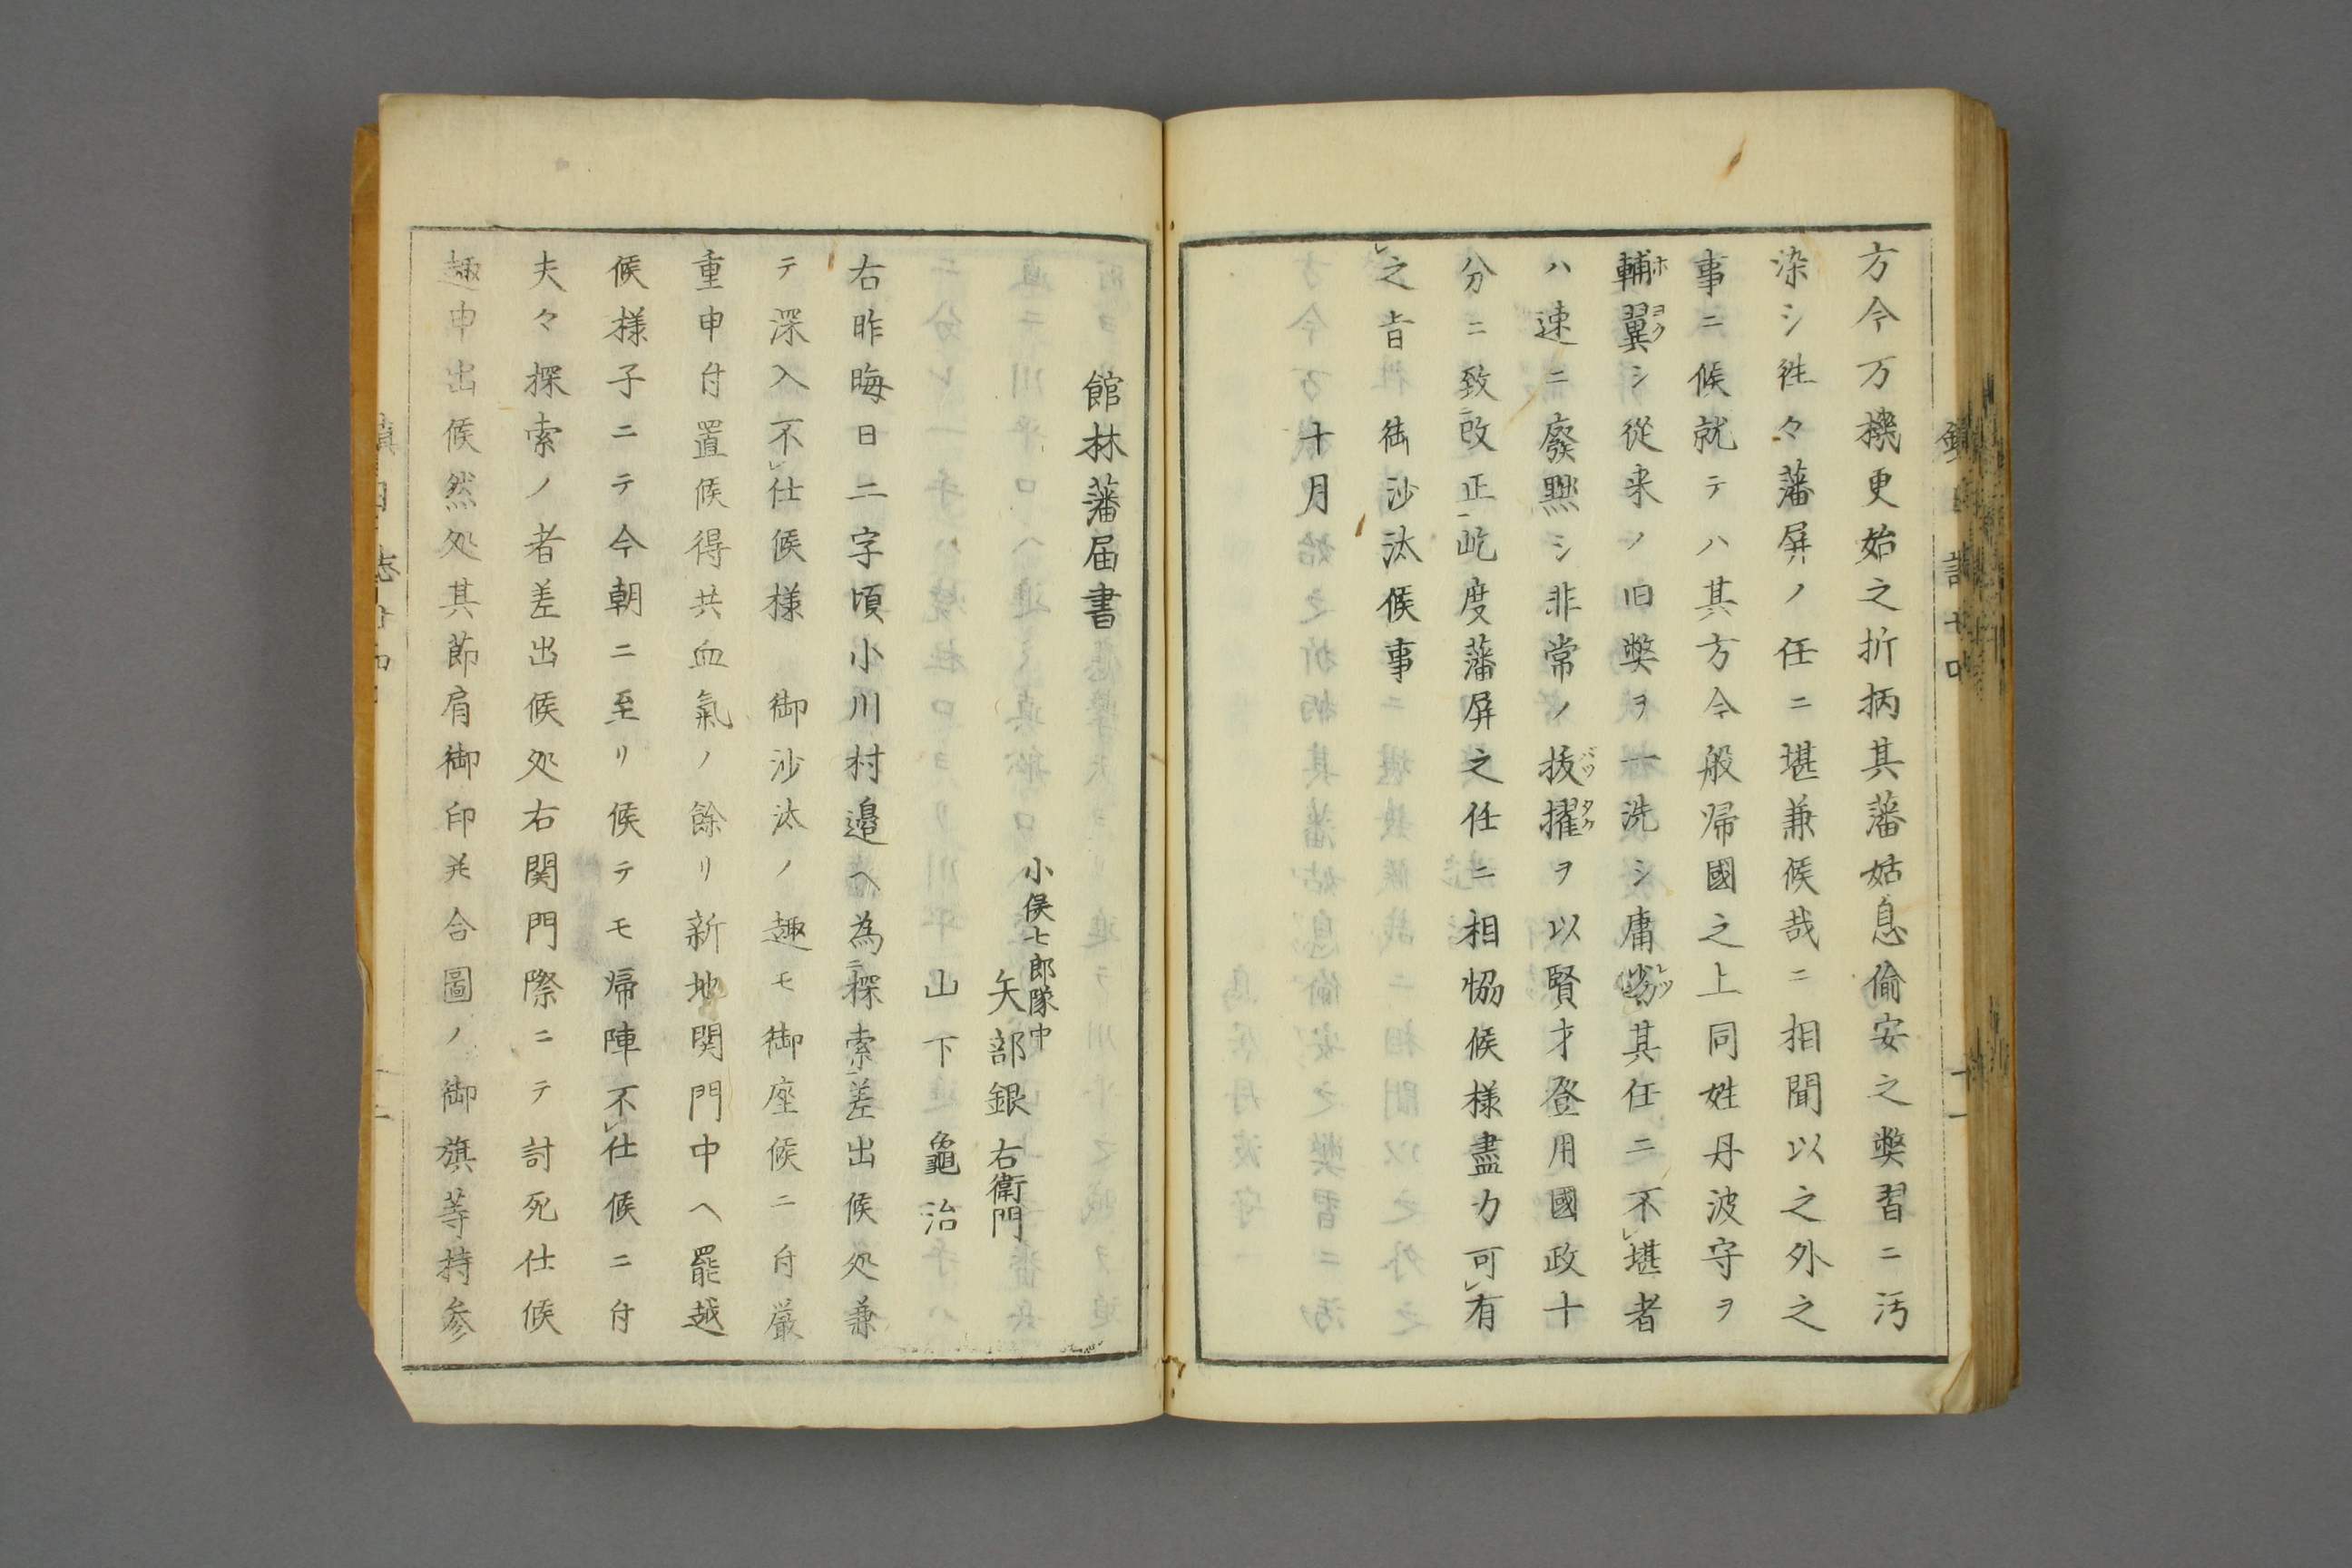 方今万機更始之折柄其藩姑息偸安之弊習ニ汚
染シ徃々藩屏ノ任ニ堪兼候哉ニ相聞以之外之
事ニ候就テハ其方今般帰國之上同姓丹波守ヲ
輔翼シ從来ノ旧弊ヲ一洗シ庸劣其任ニ不レ堪者
ハ速ニ廢黙シ非常ノ抜擢ヲ以賢才登用國政十
分ニ致二改正一屹度藩屏之任ニ相協候様盡力可レ有
レ之旨御沙汰候事
十月
館林藩届書
小俣七郎隊中
矢部銀右衛門
山下龜治
右昨晦日二字頃小川村邉ヘ為二探索一差出候処兼
テ深入不レ仕候様 御沙汰ノ趣モ御座候ニ付厳
重申付置候得共血氣ノ餘リ新地関門中ヘ罷越
候様子ニテ今朝ニ至リ候テモ帰陣不レ仕候ニ付
夫々探索ノ者差出候処右関門際ニテ討死仕候
趣申出候然処其節肩御印并合圖ノ御旗等持参